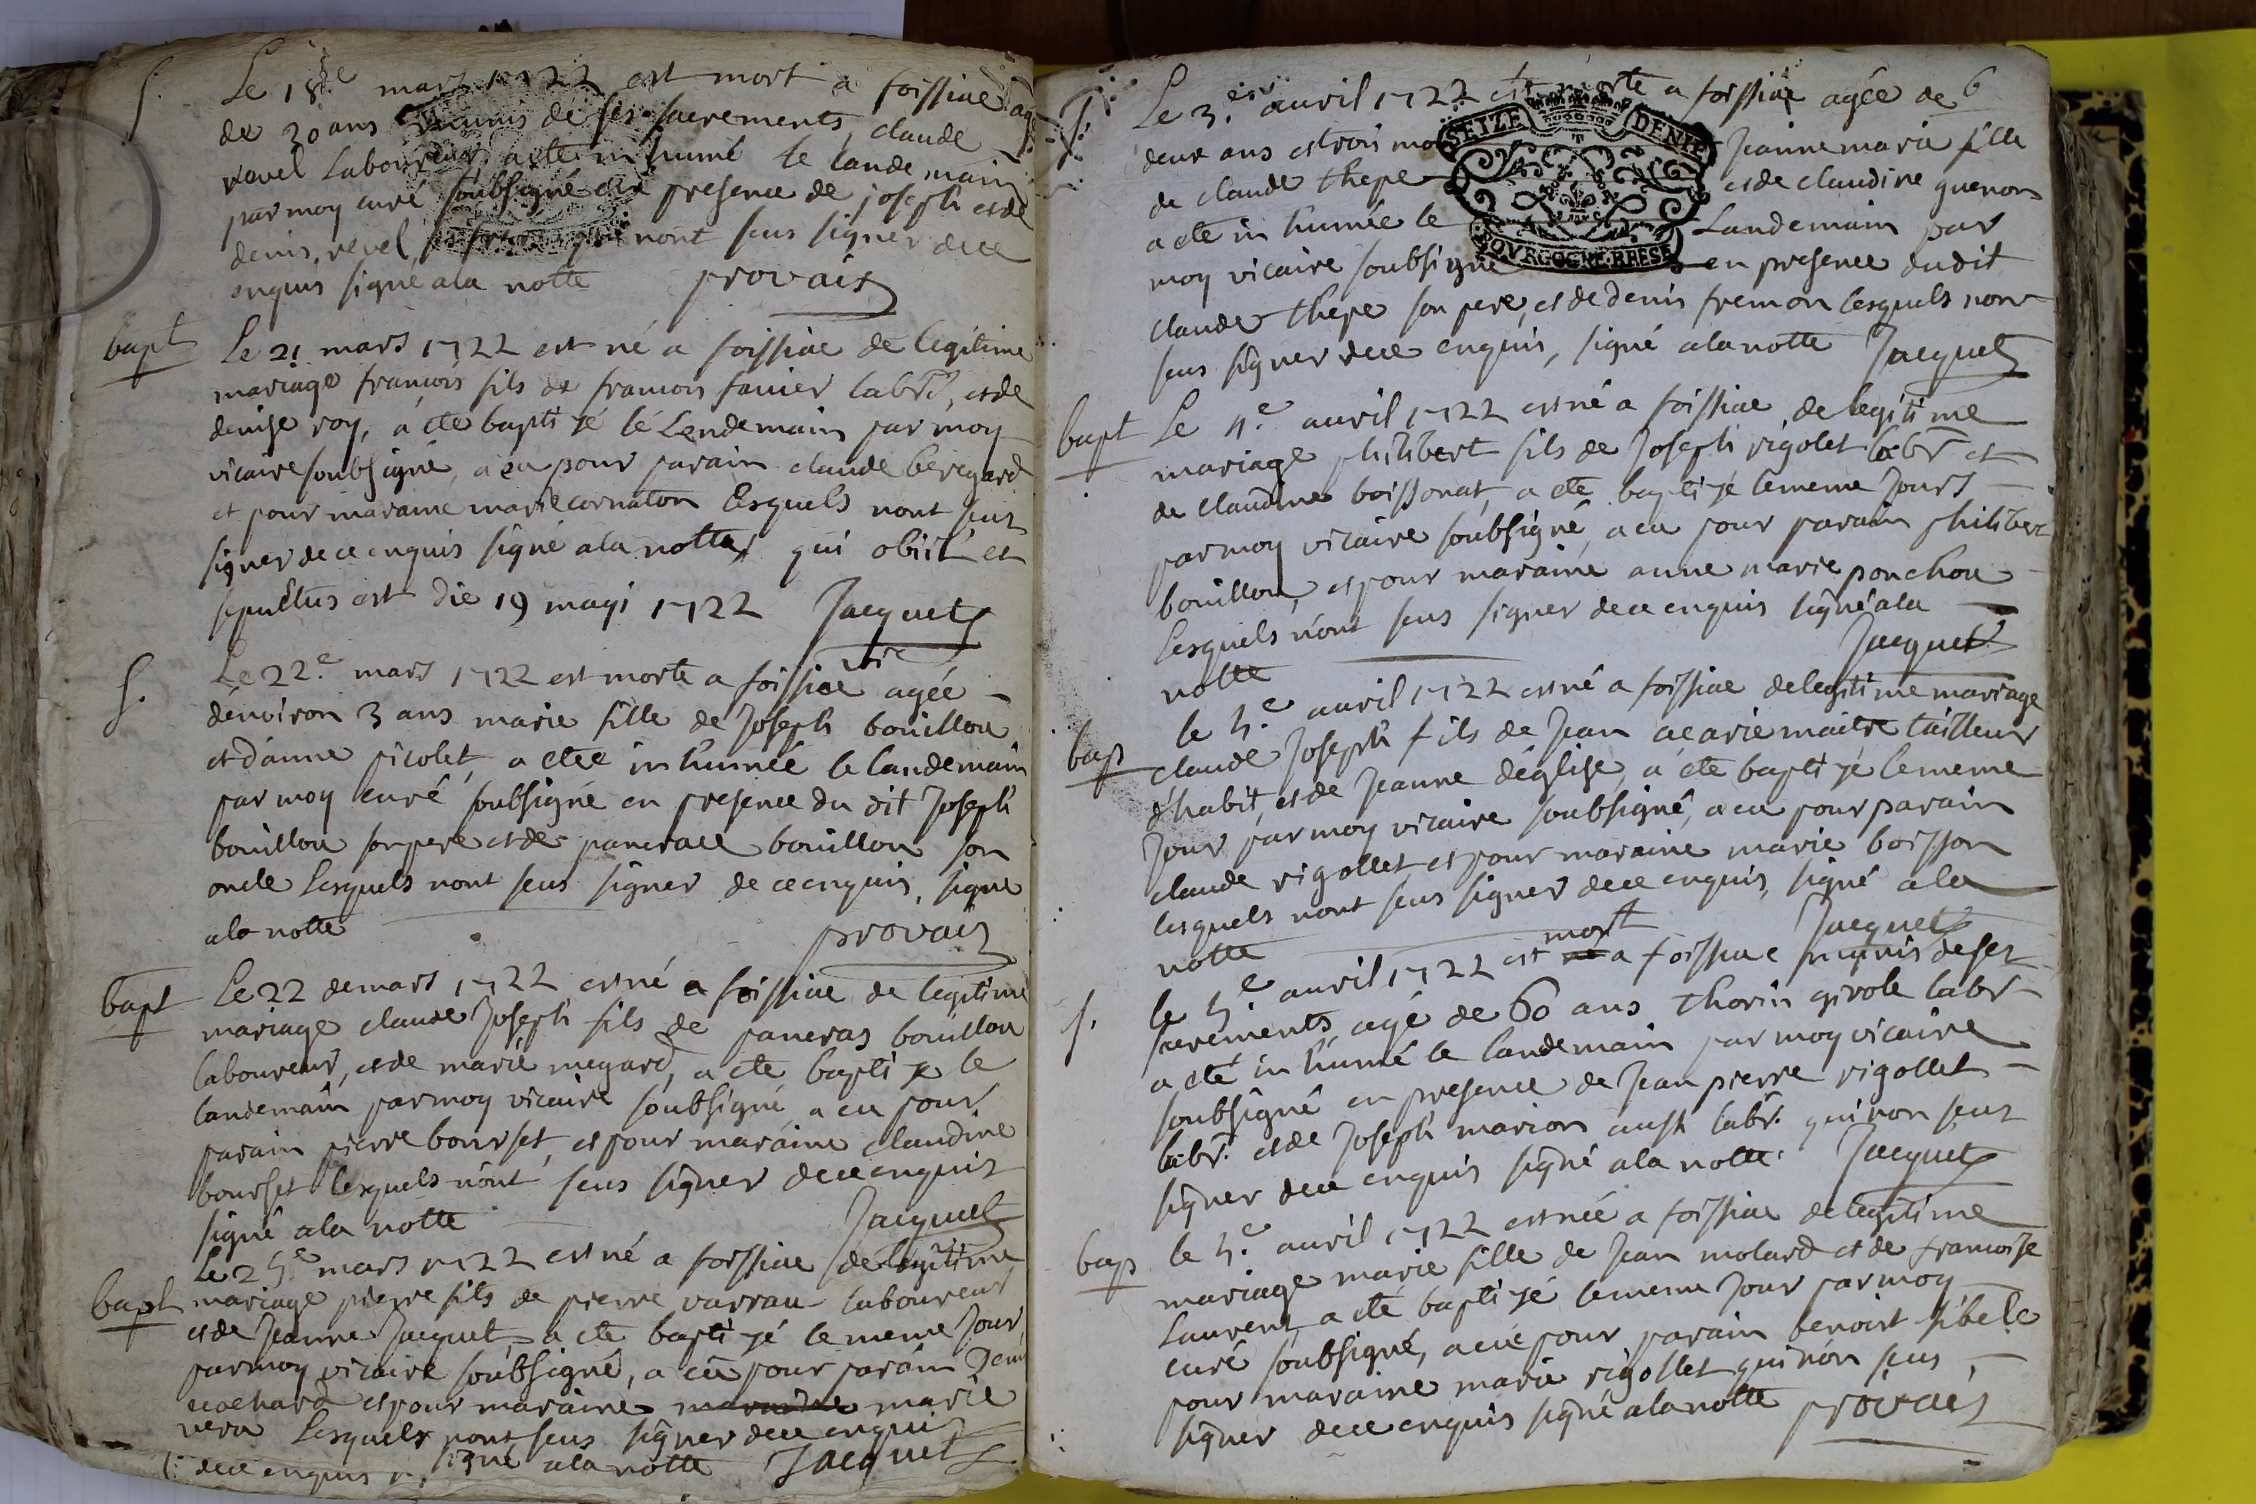 S.
Le 18e mars 1722 est mort a foissiac agé
de 30 ans munis de ses sacrements, claude
revel Laboureur, a ete in humé le lande main
par moy curé soubsigné en presence de joseph et de
denis revel, qui nont seus signer de ce
enquis signé a la notte provais
bapt
Le 21 mars 1722 est né a foissiac de legitime
mariage francois fils de francois favier labr, et de
denise roy, a ete baptizé le Lendemain par moy
vicaire soubsigné, a eu pour parain claude beregard
et pour maraine marie cornaton lesquels nont seus
signer de ce enquis signé a la notte, qui obiit et
sepultus est die 19 mayi 1722 Jacquet
vic
S.
Le 22e mars 1722 est morte a foissiac agée
dénviron 3 ans marie fille de Joseph bouillou
et dánne picolet, a eteé in humée le landemain
par moy curé soubsigné en presence du dit Joseph
bouillou son pere et de pancrace bouillou son
oncle lesquels nont seus signer de ce enquis, signé
a la notte provais
bapt
Le 22 de mars 1722 est né a foissiac de legitime
mariage claude Joseph fils de pancras bouillou
laboureur, et de marie megard, a ete baptizé le
landemain par moy vicaire soubsigné a eu pour
parain pierre bourset, et pour maraine claudine
bourset lesquels nónt seus signer de ce enquis
signé a la notte Jacquet
bapt
Le 25e mars 1722 est né a foissiac de legitime
mariage pierre fils de pierre varrau laboureur
et de Jeanne Jacquet, a ete baptizé le meme Jour
par moy vicaire soubsigné, a eu pour parain
et pour maraine marie
lesquels nont seus signer de ce enquis
de ce enquis signé a la notte Jacquet
S.
Le 3e avril 1722 est morte a foissiac agée de
deux ans et trois mois Jeanne marie fille
de claude thepe et de claudine guenon
a ete in humée le Landemain par
moy vicaire soubsigné en presence dudit
claude thepe son pere, et de denis fremon lesquels nont
seus signer de ce enquis, signé a la notte Jacquet
SEIZE DENIE
BOVRGOGNE·BRESE
bapt
Le 4e avril 1722 est né a foissiac de legitime
mariage philibert fils de Joseph rigolet labr et
de claudine boissonat, a ete baptizé le meme Jours
par moy vicaire soubsigné, a eu pour parain philibert
bouillou, et pour maraine anne marie ponchon
lesquels nónt seus signer de ce enquis signé a la
notte Jacquet
bap
le 5e avril 1722 est né a foissiac de legitime mariage
claude Joseph fils de Jean acarie maitre tailleur
d'habit, et de Jeanne déglise, a ete baptizé le meme
Jour par moy vicaire soubsigné, a eu pour parain
claude rigollet, et pour maraine marie boisson
lesquels nont seus signer de ce enquis, signé a la
notte Jacquet
S.
le 5e avril 1722 est mort a foissiac munis de ses
sacrements, agé de 60 ans thorin girole labr
a ete in humé le landemain par moy vicaire
soubsigné en presence de Jean pierre rigollet
labr. et de Joseph marion aussi labr. qui non seus
signer de ce enquis signé a la notte. Jacquet
bap
le 5e avril 1722 est née a foissiac de legitime
mariage marie fille de Jean molard et de francoise
Laurent, a ete baptizé le meme Jour par moy
curé soubsigné, a eu pour parain benoist sibele
pour maraine marie rigollet qui nón seus
signer de ce enquis signé a la notte provais